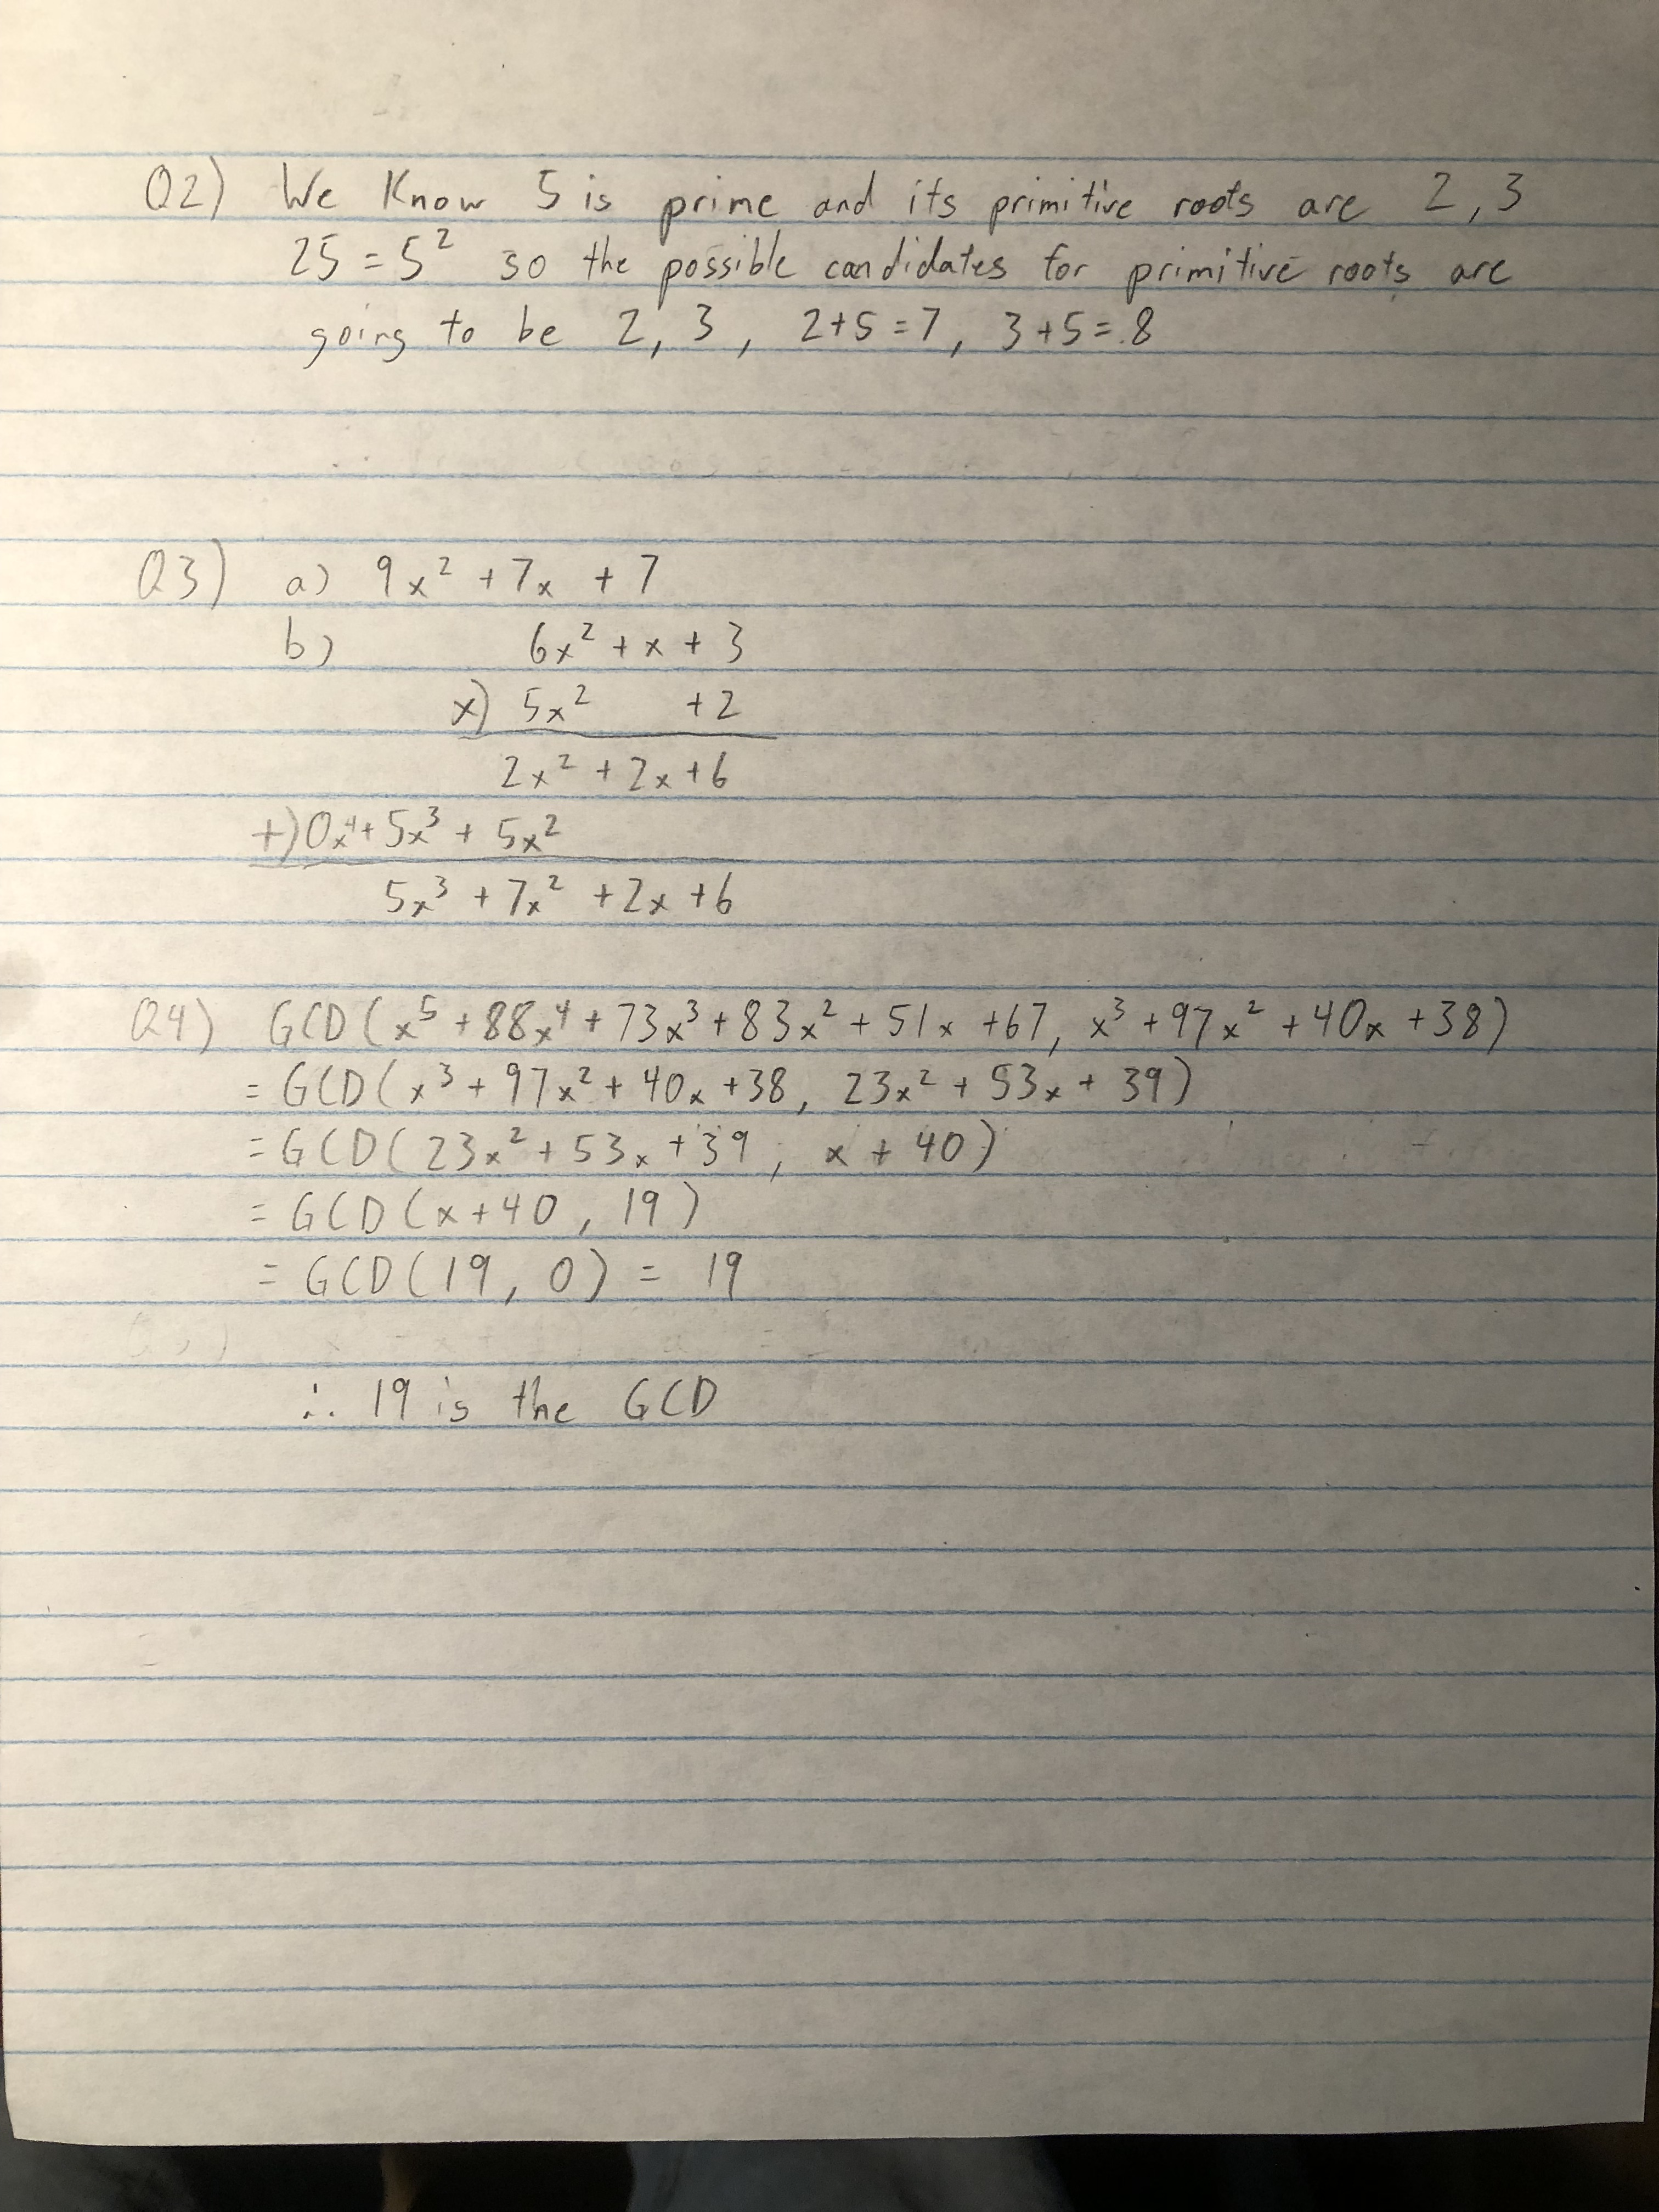 Q2) We Know 5 is prime and its primitive roots are 2, 3
25 = 5² so the possible candidates for primitive roots are
going to be 2, 3, 2+5=7, 3+5=8
Q3) a) 9x² + 7x + 7
b) 6x² + x + 3
x) 5x² +2
2x² + 2x + 6
+) 0x⁴ + 5x³ + 5x²
5x³ + 7x² + 2x + 6
Q4) GCD(x⁵ + 88x⁴ + 73x³ + 83x² + 51x + 67, x³ + 97x² + 40x + 38)
= GCD(x³ + 97x² + 40x + 38, 23x² + 53x + 39)
= GCD(23x² + 53x + 39, x + 40)
= GCD(x+40, 19)
= GCD(19, 0) = 19
∴ 19 is the GCD